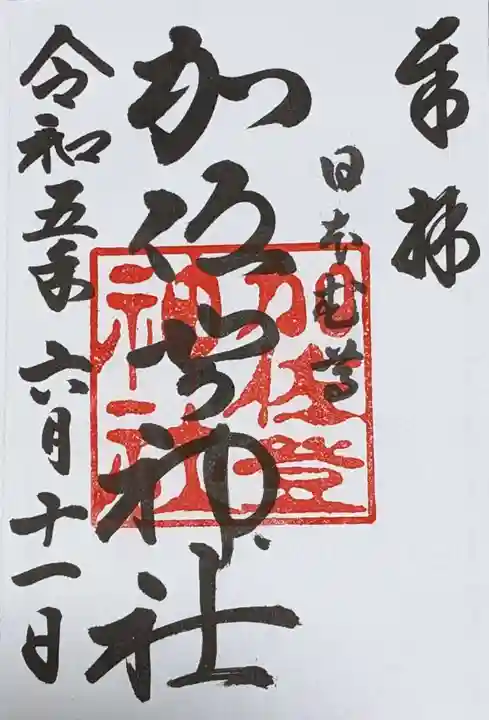 奉拝
日本武尊
加佐登神社
加佐登
神社
令和五年六月十一日